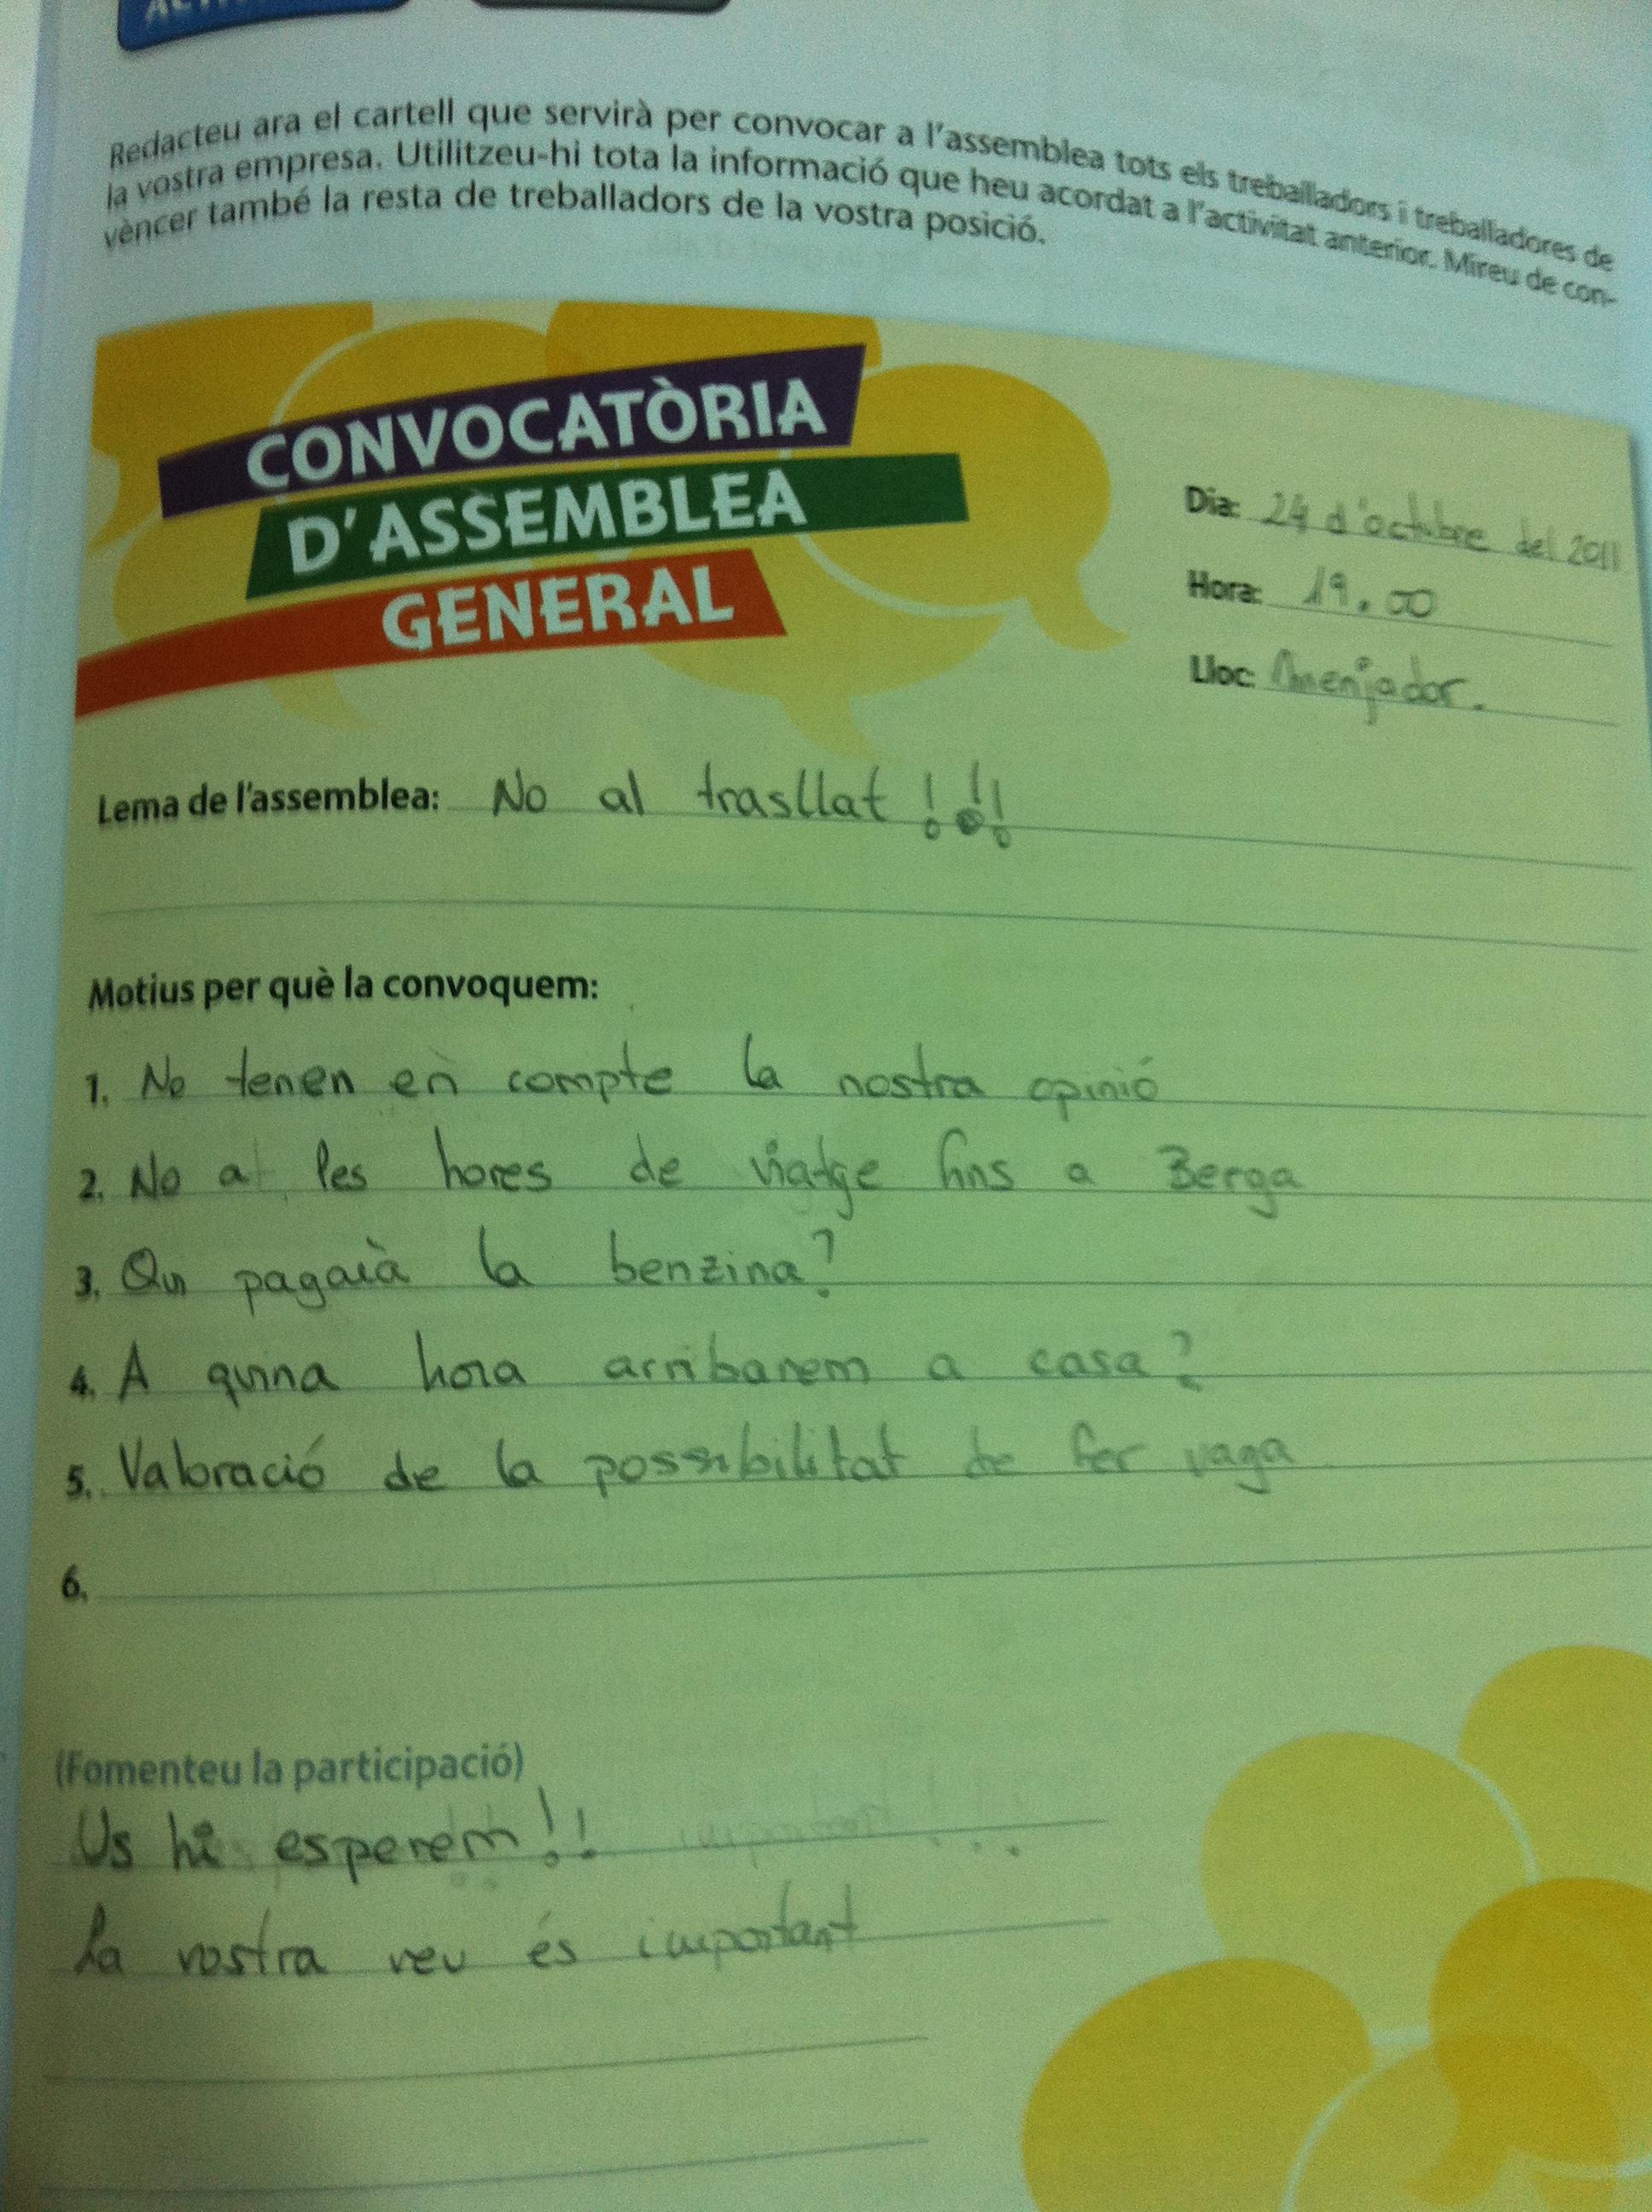 Redacteu ara el cartell que servirà per convocar a l'assemblea tots els treballadors i treballadores de
la vostra empresa. Utilitzeu-hi tota la informació que heu acordat a l'activitat anterior. Mireu de con-
vèncer també la resta de treballadors de la vostra posició.
CONVOCATÒRIA
D'ASSEMBLEA
GENERAL
Dia: 24 d'octubre del 2011
Hora: 19.00
Lloc: Menjador.
Lema de l'assemblea: No al trasllat!!!
Motius per què la convoquem:
1. No tenen en compte la nostra opinió
2. No a les hores de viatge fins a Berga
3. Qui pagarà la benzina?
4. A quina hora arribarem a casa?
5. Valoració de la possibilitat de fer vaga
6.
(Fomenteu la participació)
Us hi esperem!!
La vostra veu és important